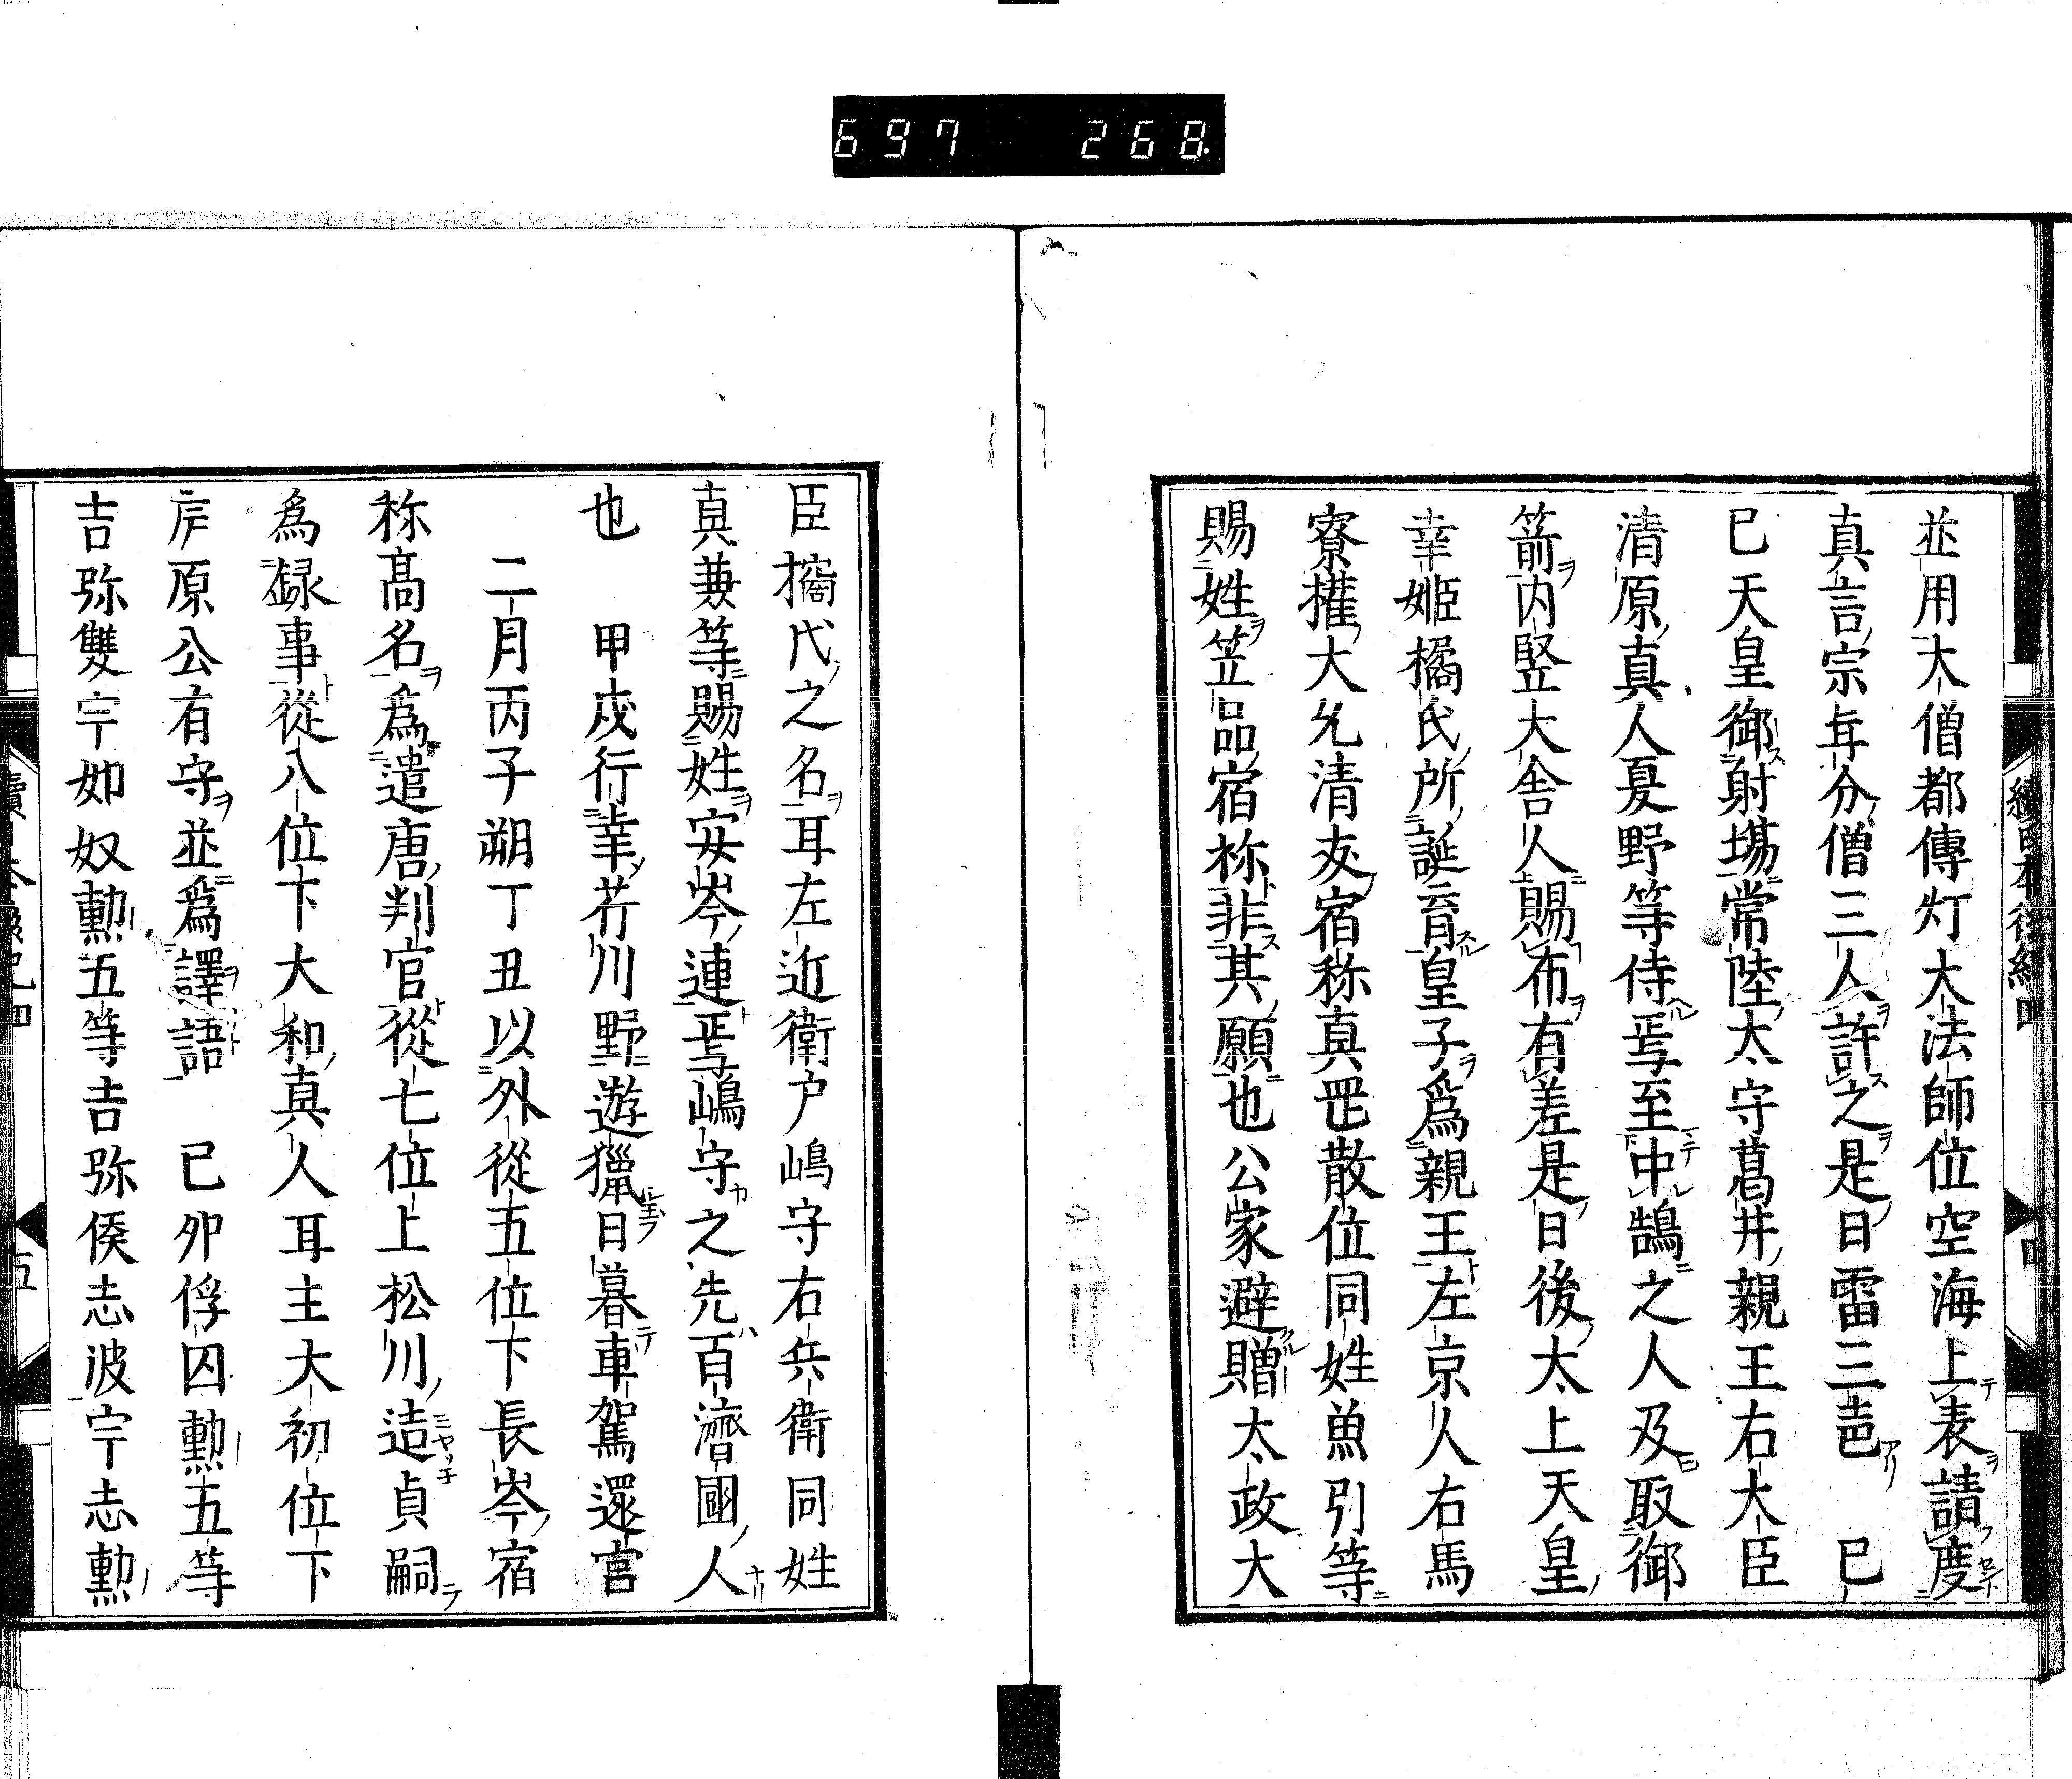 697 268
並用大僧都傳灯大法師位空海上表請度
真言宗年分僧三人許之是日雷三𠁅 已
巳天皇御射場常陸太守葛井親王右大臣
清原真人夏野等侍焉至中鵠之人及取御
箭内竪大舎人賜布有差是日後太上天皇
幸姫橘氏所誕育皇子為親王左京人右馬
寮権大允清友宿祢真罡散位同姓魚引等
賜姓笠品宿祢非其願也公家避贈太政大
臣橘氏之名耳左近衛戸嶋守右兵衛同姓
真兼等賜姓安岑連焉嶋守之先百濟國人
也 甲戌行幸芹川野遊獵日暮車駕還宮
二月丙子朔丁丑以外從五位下長岑宿
祢高名為遣唐判官從七位上松川造貞嗣
為録事從八位下大和真人耳主大初位下
廬原公有守並為譯語 己卯俘囚勲五等
吉弥雙宇如奴勲五等吉弥侯志波宇志勲